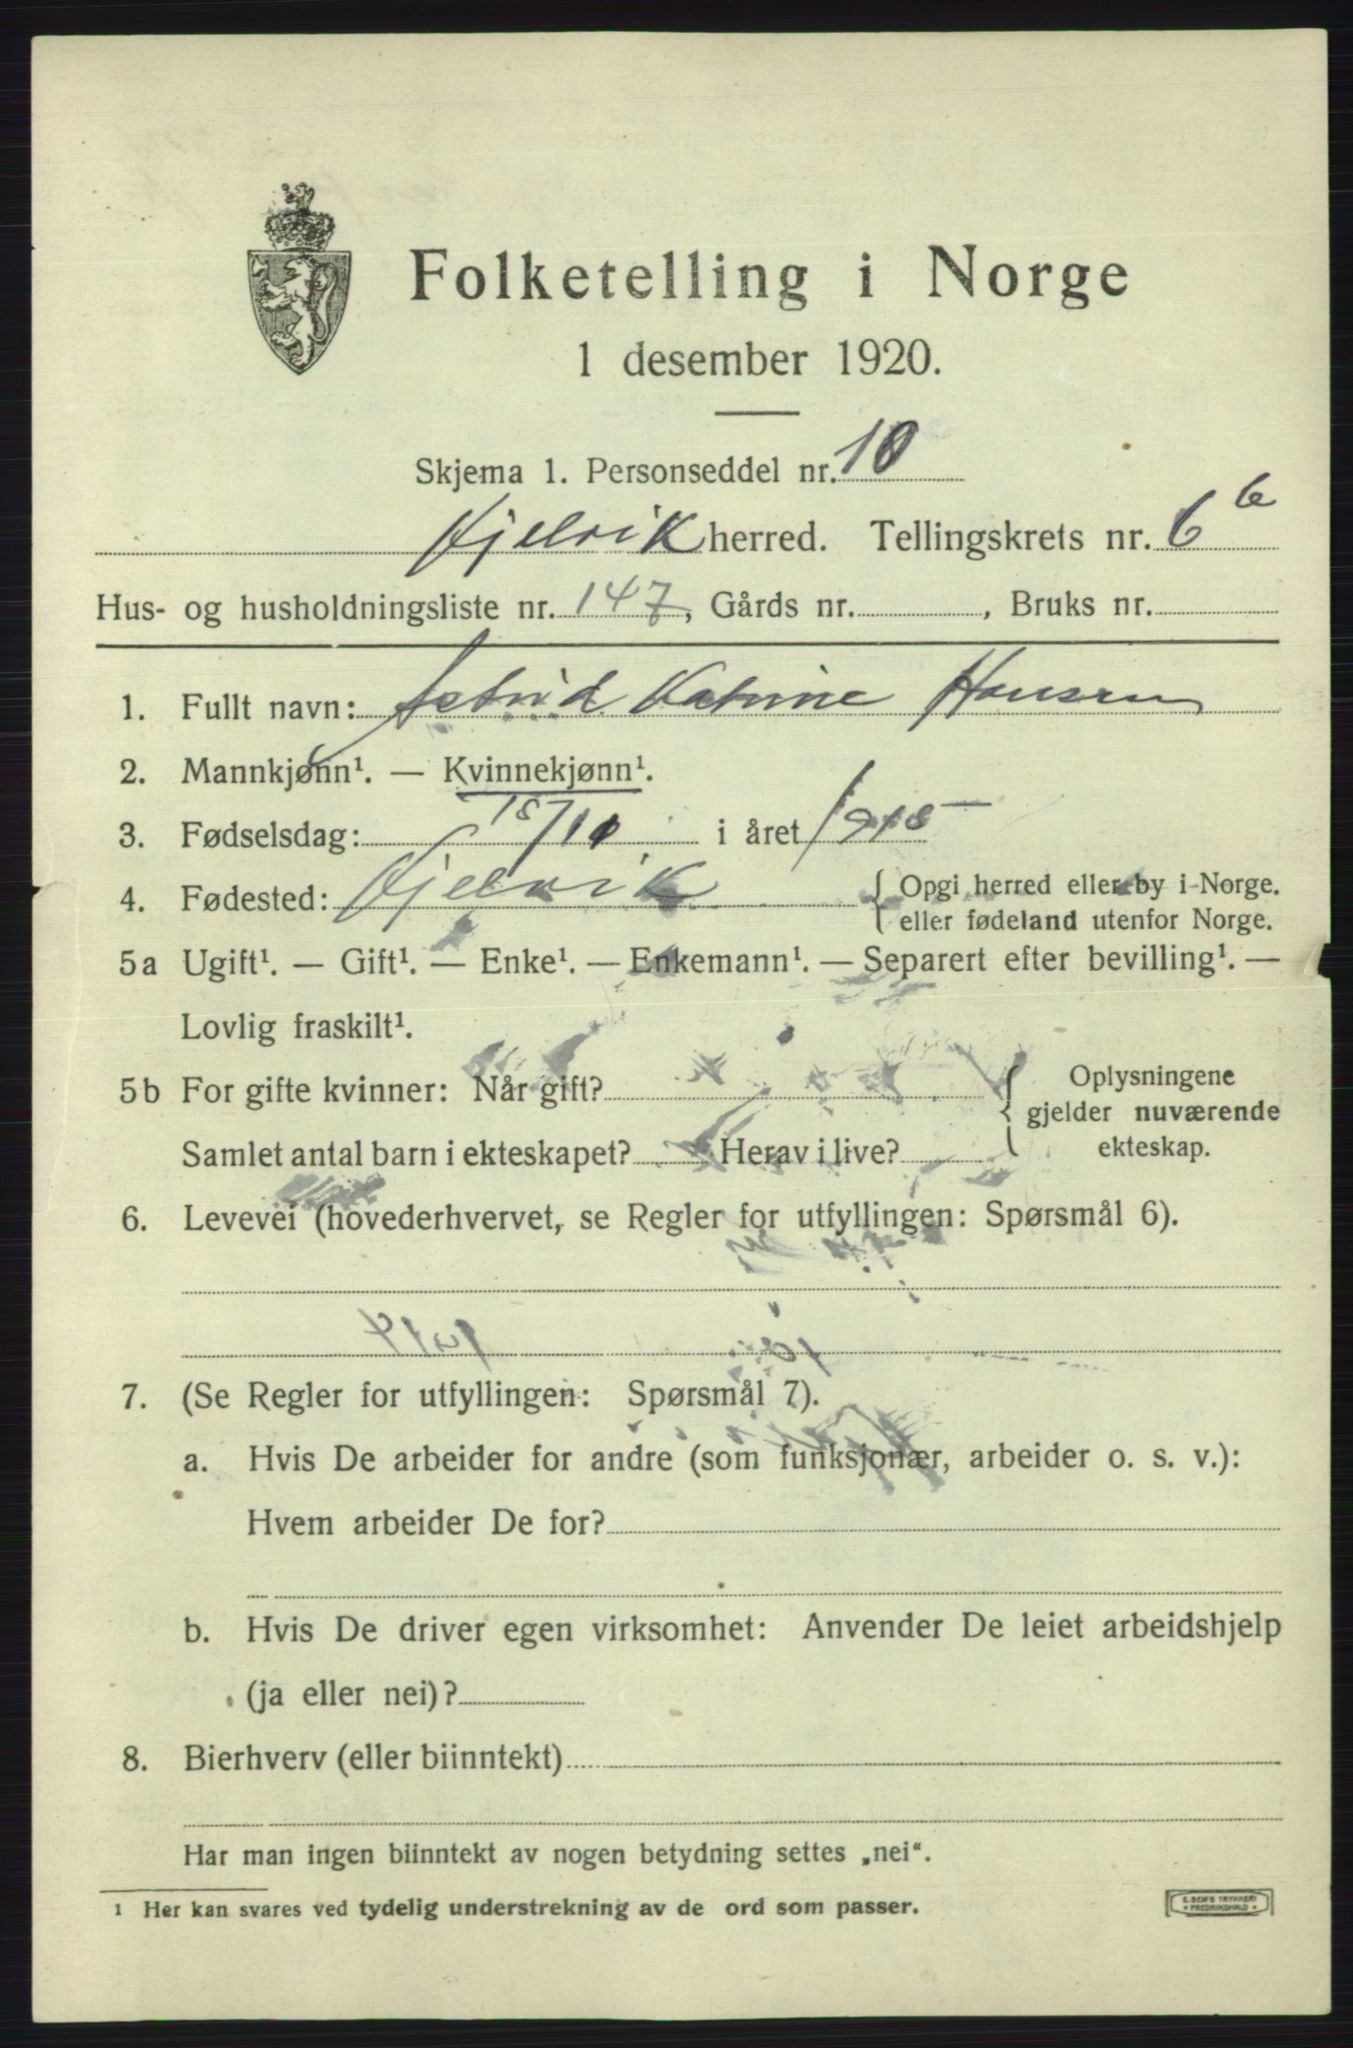 Folketelling i Norge
1 desember 1920.
Skjema 1. Personseddel nr. 10
Gjelvik herred. Tellingskrets nr. 6 b
Hus- og husholdningsliste nr. 147, Gårds nr. , Bruks nr.
1. Fullt navn: Astrid Katrine Hansen
2. Mannkjønn¹. — Kvinnekjønn¹.
3. Fødselsdag: 18/11 i året 1915
4. Fødested: Gjelvik { Opgi herred eller by i Norge.
eller fødeland utenfor Norge.
5a Ugift¹. — Gift¹. — Enke¹. — Enkemann¹. — Separert efter bevilling¹. —
Lovlig fraskilt¹.
5b For gifte kvinner: Når gift? { Oplysningene
gjelder nuværende
Samlet antal barn i ekteskapet? Herav i live? ekteskap.
6. Levevei (hovederhvervet, se Regler for utfyllingen: Spørsmål 6).
7. (Se Regler for utfyllingen: Spørsmål 7).
a. Hvis De arbeider for andre (som funksjonær, arbeider o. s. v.):
Hvem arbeider De for?
b. Hvis De driver egen virksomhet: Anvender De leiet arbeidshjelp
(ja eller nei)?
8. Bierhverv (eller biinntekt)
Har man ingen biinntekt av nogen betydning settes „nei“.
¹ Her kan svares ved tydelig understrekning av de ord som passer.
E. SEM'S TRYKKERI
FREDRIKSHALD